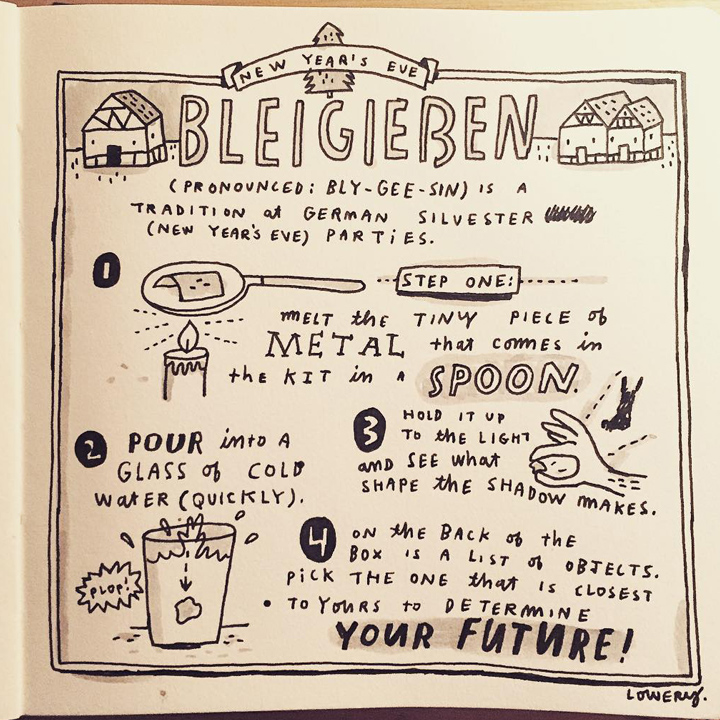 NEW YEAR'S EVE
BLEIGIEßEN
(PRONOUNCED: BLY-GEE-SIN) IS A
TRADITION at GERMAN SILVESTER
(NEW YEAR'S EVE) PARTIES.
1
STEP ONE:
MELT the TINY PIECE of
METAL that comes in
the KIT in A SPOON.
2 POUR into A
GLASS of COLD
WATER (QUICKLY).
PLOP!
3 HOLD IT UP
TO the LIGHT
AND SEE what
SHAPE the SHADOW MAKES.
4 ON the BACK of the
BOX IS A LIST of OBJECTS.
PICK THE ONE that IS CLOSEST
TO YOURS to DETERMINE
YOUR FUTURE!
LOWERY.